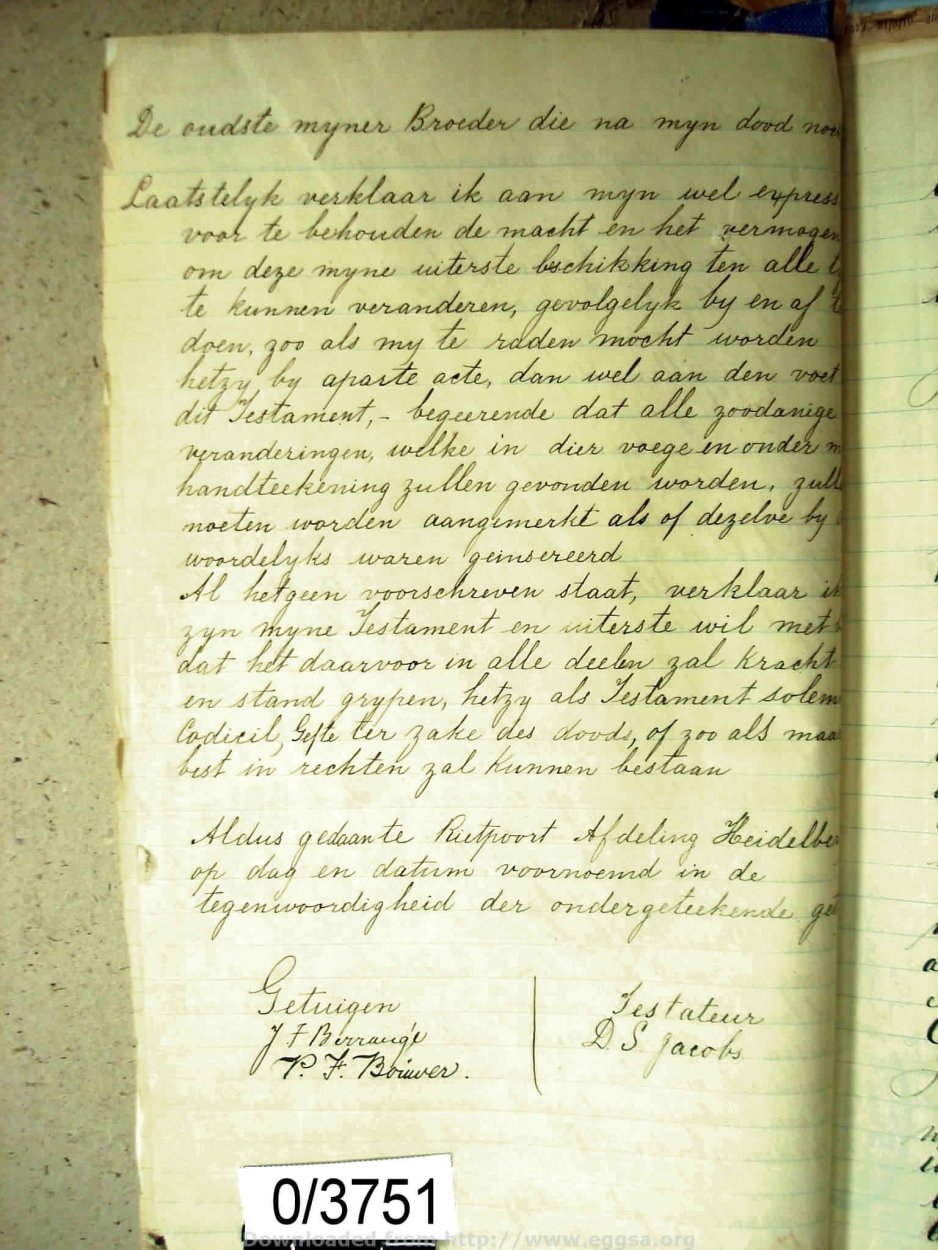 De oudste myner Broeder die na myn dood
Laatstelyk verklaar ik aan myn wel express
voor te behouden de macht en het vermogen
om deze myne uiterste bschikking ten alle
te kunnen veranderen, gevolgelyk by en af
doen, zoo als my te raden mocht worden
hetzy by aparte acte, dan wel aan den voet
dit Testament,- begeerende dat alle zoodanige
veranderingen, welke in dier voege en onder
handteekening zullen gevonden worden,
moeten worden aangemerkt als of dezelve by
woordelyks waren geinsereerd
Al hetgeen voorschreven staat, verklaar ik
zyn myne Testament en uiterste wil met
dat het daarvoor in alle deelen zal Kracht
en stand grypen, hetzy als Testament solem
Codicil, Gifte ter zake des doods, of zoo als
best in rechten zal Kunnen bestaan
Aldus gedaan te Rietpoort Afdeling
op dag en datum voornoemd in de
tegenwoordigheid der ondergeteekende
Getuigen
J F Berrangé
P. F. Bouwer.
Testateur
D. S. Jacobs
0/3751
Downloaded from http://www.eggsa.org